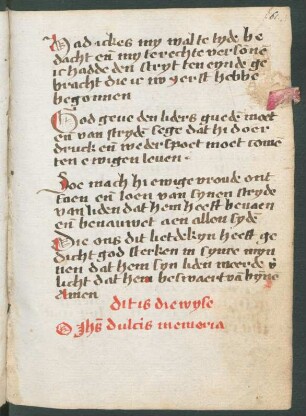 Had ickes my wal te tyde be
dacht en̄ my te rechte versone
ic hadde den stryt ten eynde ge
bracht die ic nv yerst hebbe
begonnen
God geue den liders guede moet
en̄ van stryde sege dat hi doer
druck en̄ wederspoet moet come
ten ewigen leuen
Soe mach hi ewige vroude ont
faen en̄ loen van synen stryde
van liden dat hem heeft beuaen
en̄ benauwet aen allen syde
Die ons dit liedekyn heeft ge
dicht god sterken in synre myn
nen dat hem syn liden werde v̄
licht dat hem beswaert va bȳne
Amen
Dit is die wyse
O Jhs̄ dulcis memoria